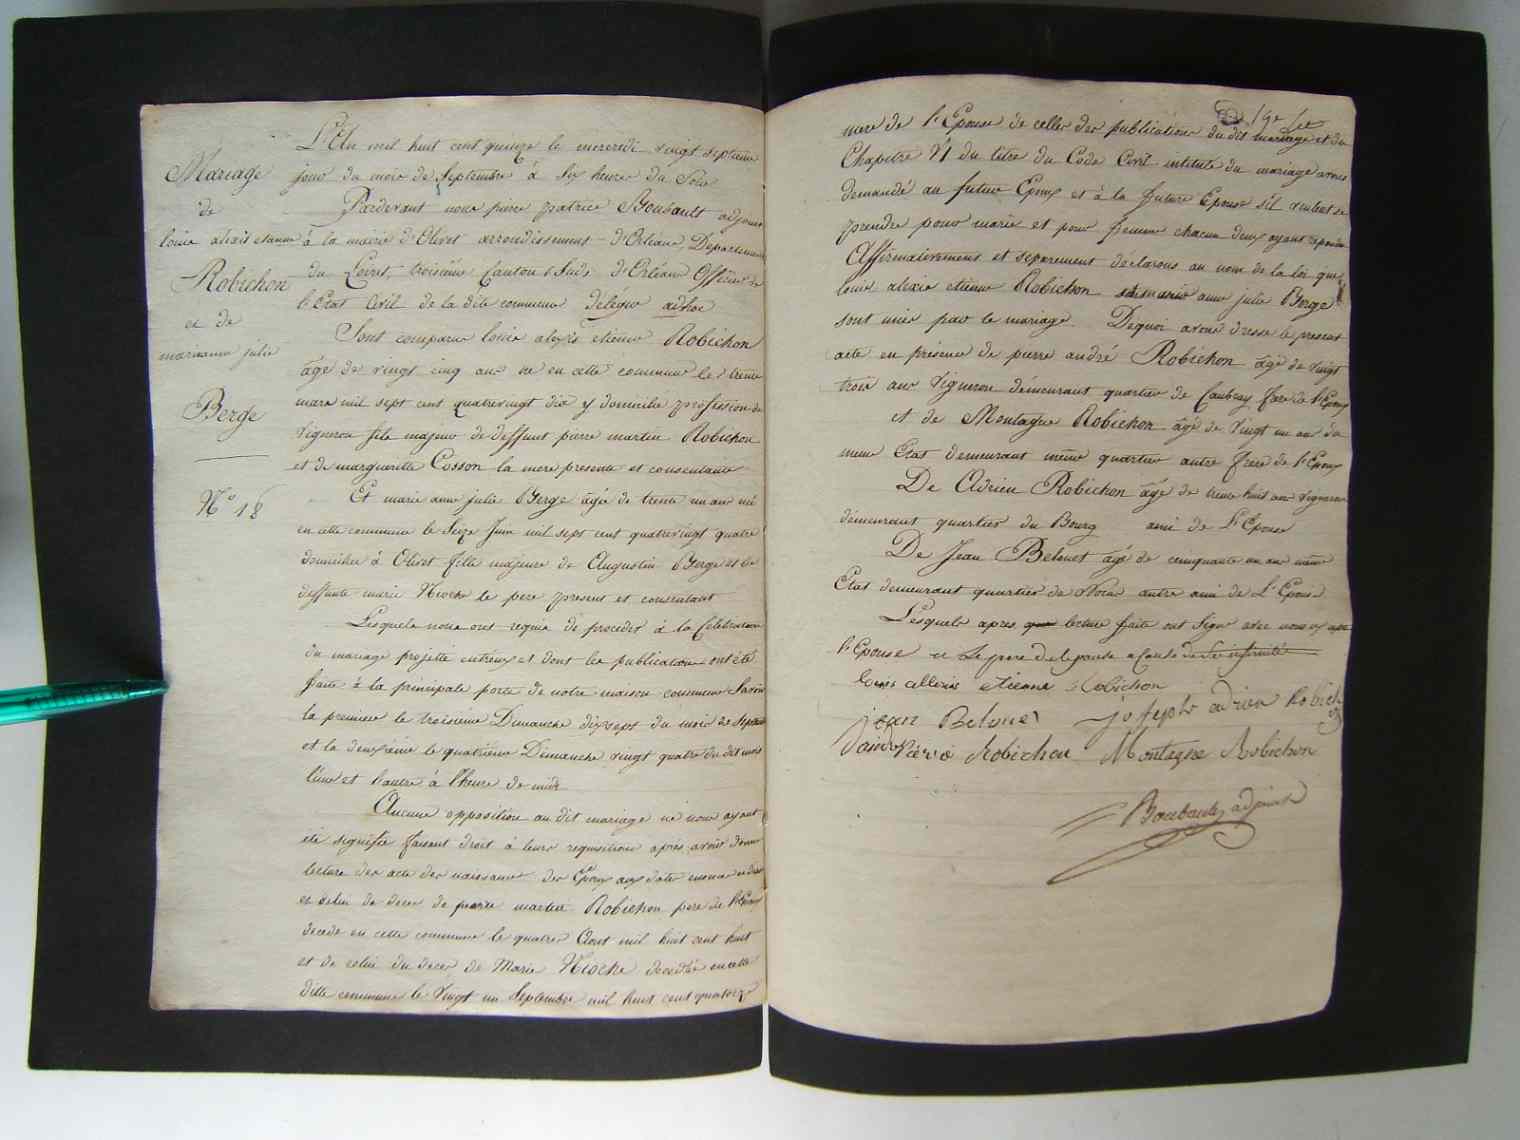 Mariage
de
louis alexis etienne
Robichon
et de
marieanne julie
Berge
N° 18
L'An mil huit cent quinze le mercredi vingt septieme
jour du mois de Septembre à Six heures du Soir
Pardevant nous pierre patrice Boubault adjoint
à la mairie d'Olivet arrondissement d'Orléans, Departement
du Loiret, troisieme Canton Sud d'Orléans Officier de
l'Etat Civil de la dite commune delegué adhoc
Sont comparus louis alexis etienne Robichon
âgé de vingt cinq ans né en cette commune le trente
mars mil sept cent quatrevingt dix y domicilié profession de
Vigneron fils majeur de deffunt pierre martin Robichon
et de marguerite Cosson la mere presente et consentante
Et marie anne julie Berge âgée de trente un ans née
en cette commune le Seize Juin mil sept cent quatrevingt quatre
domiciliée à Olivet fille majeure de Augustin Berge et de
deffunte marie Hioche le pere present et consentant
Lesquels nous ont requis de proceder à la Celebration
du mariage projetté entreux et dont les publications ont été
faites à la principale porte de notre maison commune Savoir
la premiere le troisieme Dimanche dixsept du mois de Septembre
et la deuxième le quatrieme Dimanche vingt quatre du dit mois
l'une et l'autre à l'heure de midi
Aucune opposition au dit mariage ne nous ayant
été signifiée faisant droit à leurs requisition après avoir donné
lecture des acte des naissances des Epoux aux dates enoncé ci dessus
et celui de deces de pierre martin Robichon pere de l'Epoux
decedé en cette commune le quatre Aout mil huit cent huit
et de celui du deces de Marie Hioche decedée en cette
ditte commune le Vingt un Septembre mil huit cent quatorze
mere de l'Epouse de celles des publications du dit mariage et du
Chapitre VI du titre du Code Civil intitulé du mariage avons
demandé au futur Epoux et à la future Epouse s'il veulent se
prendre pour mari et pour femme chacun deux ayant repondu
Affirmativement et separement declarons au nom de la loi que
louis alexis etienne Robichon anne julie Berge
sont unis par le mariage. Dequoi avons dressé le present
acte en présence de pierre andré Robichon âgé de vingt
trois ans Vigneron demeurant quartier de Caubray frere de l'Epoux
et de Montagne Robichon âgé de Vingt un an du
meme Etat demeurant même quartier autre frere de l'Epoux
De Adrien Robichon âgé de trente huit ans Vigneron
demeurant quartier du Bourg ami de L'Epouse
De Jean Belouet âgé de cinquante un ans même
Etat demeurant quartier de autre ami de L'Epouse
Lesquels apres que lecture faite ont Signé avec nous
l'Epouse et Le pere de lepouse a Cause de Ses infirmité
louis allexis etienne Robichon
jean Belouet joseph adrien Robichon
Robichon Montagne Robichon
Boubault adjoint